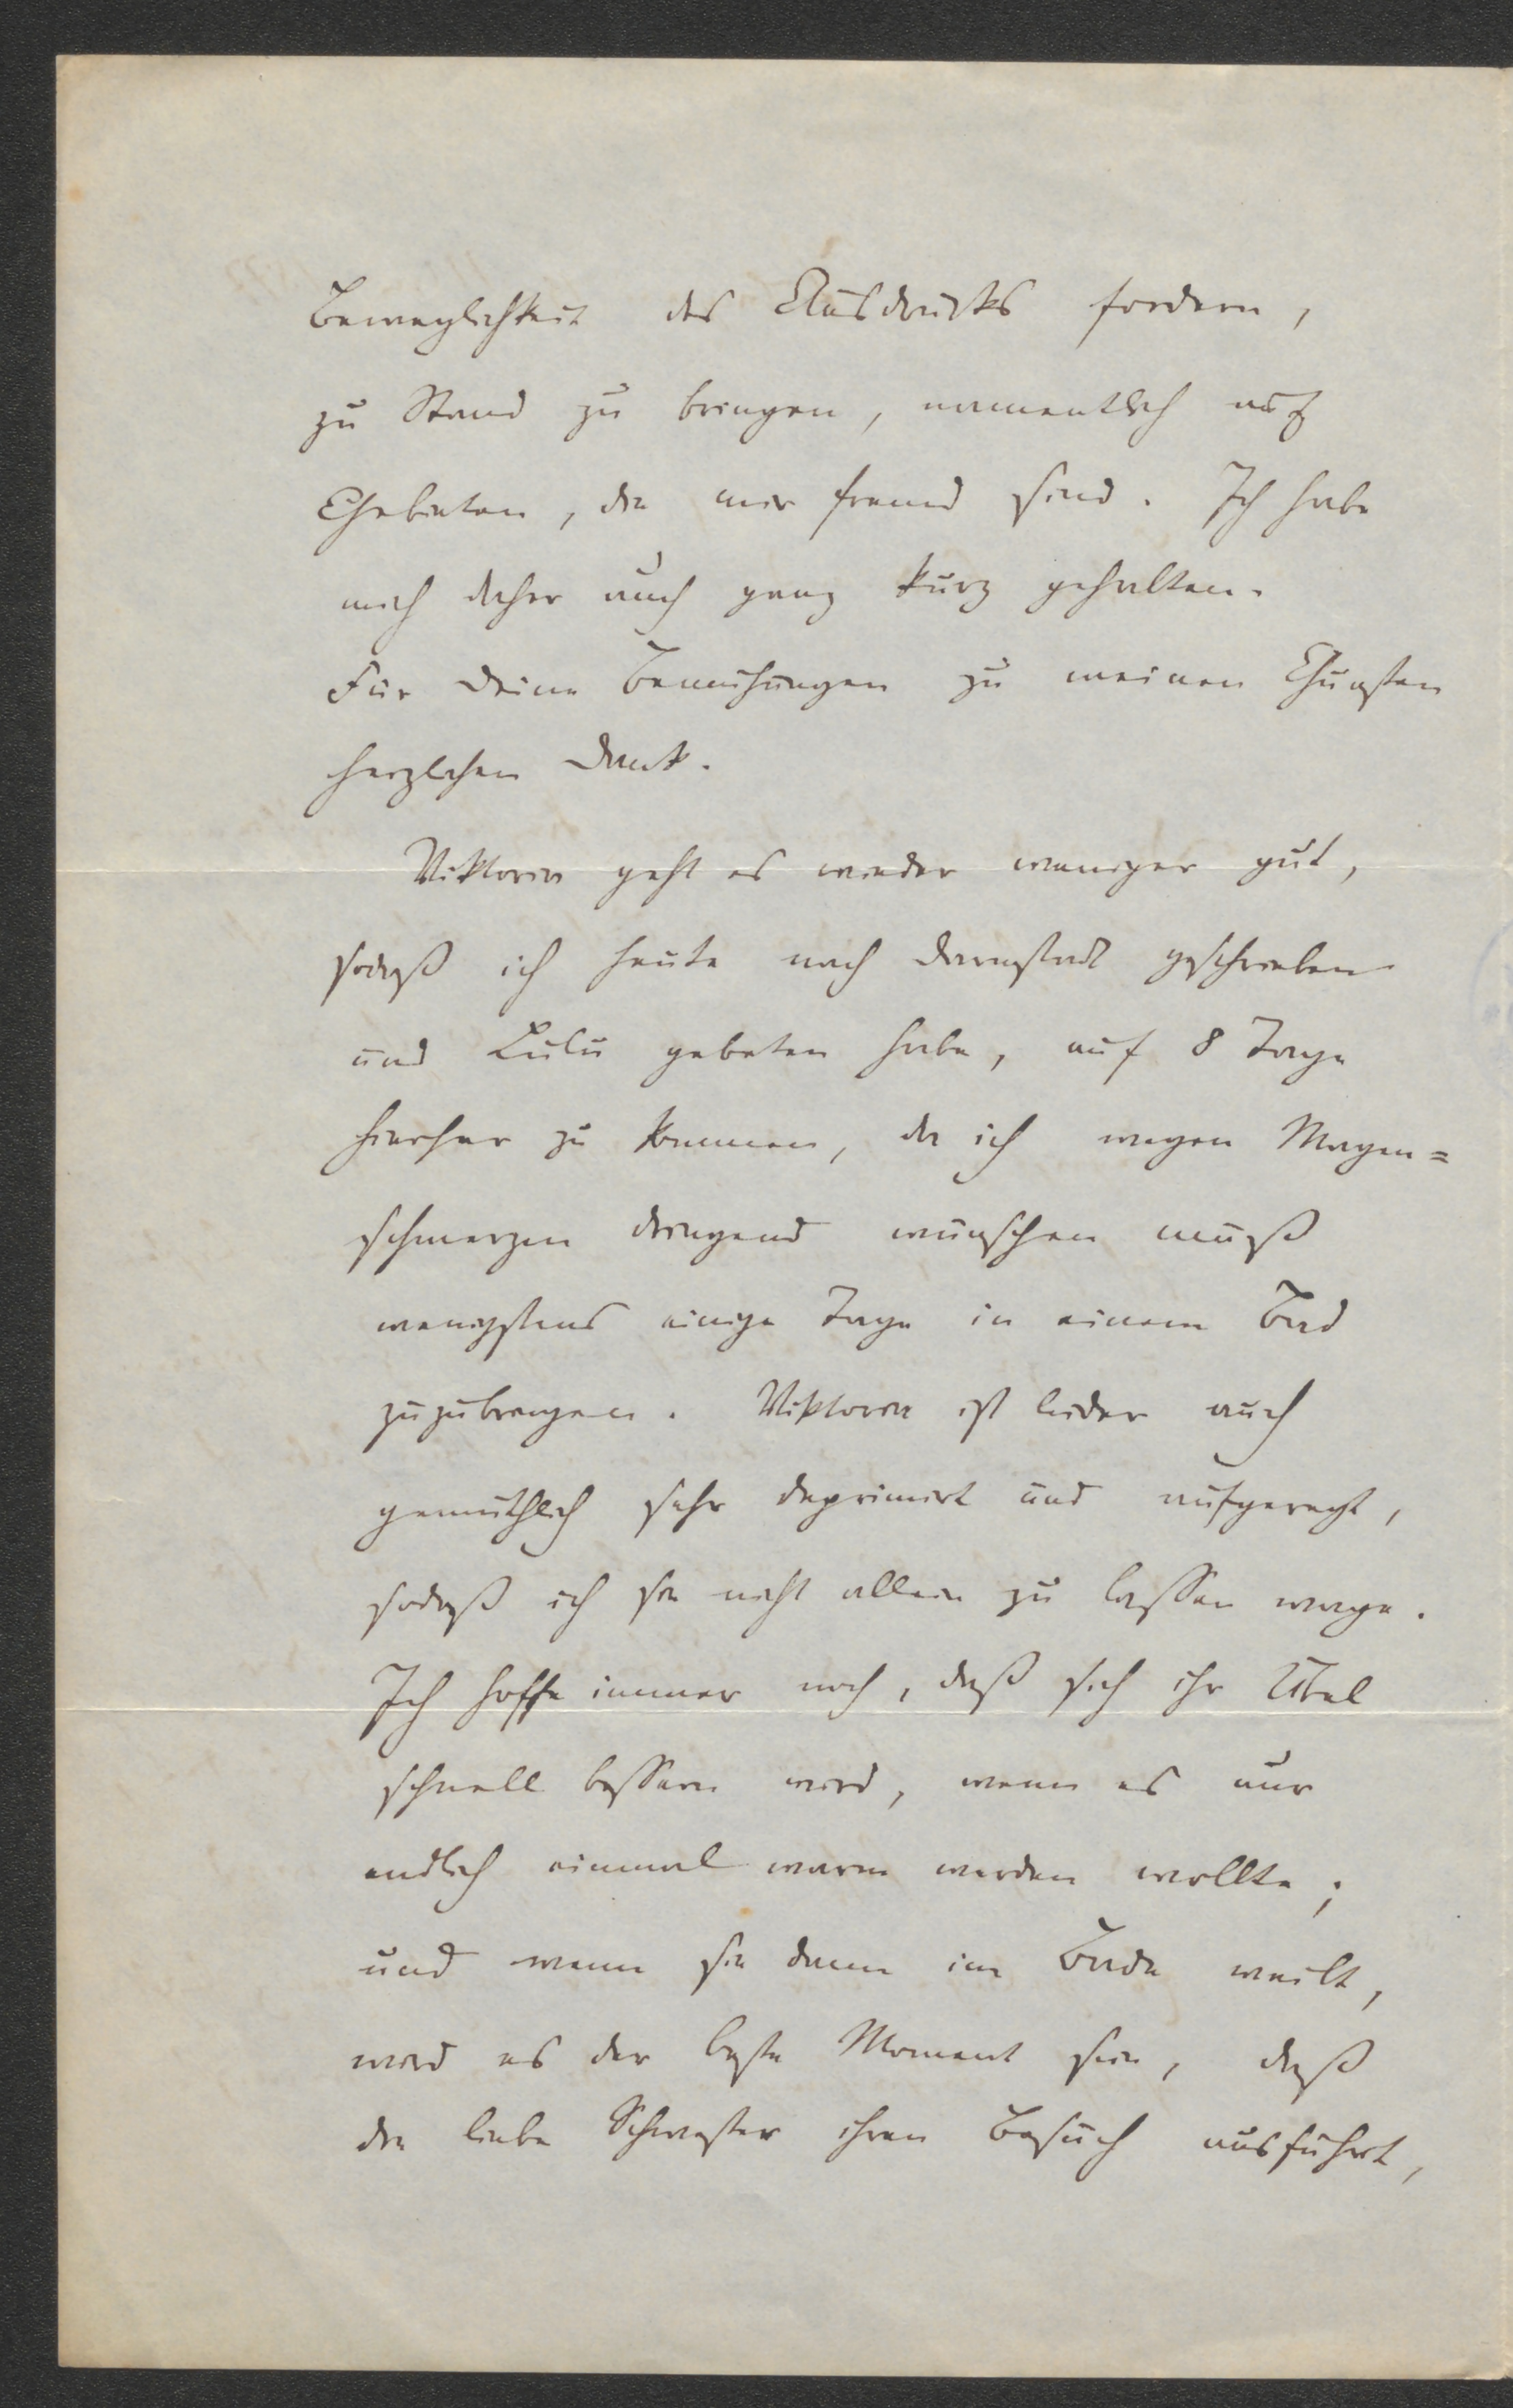 Beweglichkeit des Ausdrucks fordern,
zu Stand zu bringen, namentlich auf
Gebieten, die mir fremd sind. Ich habe
mich daher auch ganz kurz gehalten.
Für Deine Bemühungen zu meinen Gunsten
herzlichen Dank.
Viktorin geht es wieder weniger gut,
sodaß ich heute nach Darmstadt geschrieben
und Lulu gebeten habe, auf 8 Tage
hierher zu kommen, da ich wegen Magen=
schmerzen dringend wünschen muß
wenigstens einige Tage in einem Bad
zuzubringen. Viktorin ist leider auch
gemüthlich sehr deprimirt und aufgeregt,
sodaß ich sie nicht allein zu lassen wage.
Ich hoffe immer noch, daß sich ihr Übel
schnell bessern wird, wenn es nur
endlich einmal warm werden wollte;
und wenn sie dann im Bade weilt,
wird es der beste Moment sein, daß
die liebe Schwester ihren Besuch ausführt,